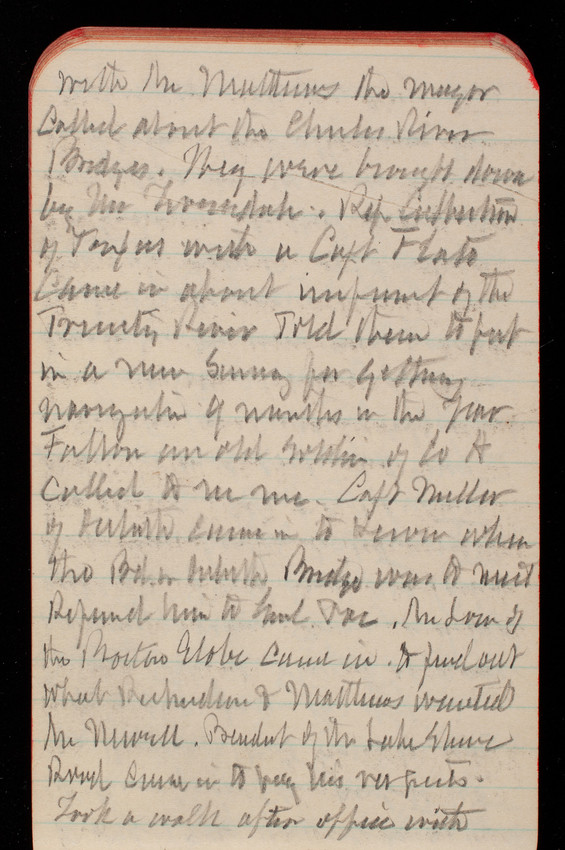 with Mr Matthews the mayor
Called about the Charles River
Bridges. They were brought down
by Mr Loverdale. Rep Culberson
of Texas with a Capt Flato
Came in about imp'ment of the
Trinity River Told them to put
in a new Survey for getting
navigation 9 months in the year
Fallon an old soldier of Co H
Called to see me. Capt Miller
of Duluth came in to know when
the Bd. on Duluth Bridge was to meet
Refered him to Genl Poe. Mr Low of
the Boston Globe came in. to find out
what Richardson & Matthews wanted
Mr Newell. President of the Lake Shore
Road came in to pay his respects.
Took a walk after office with